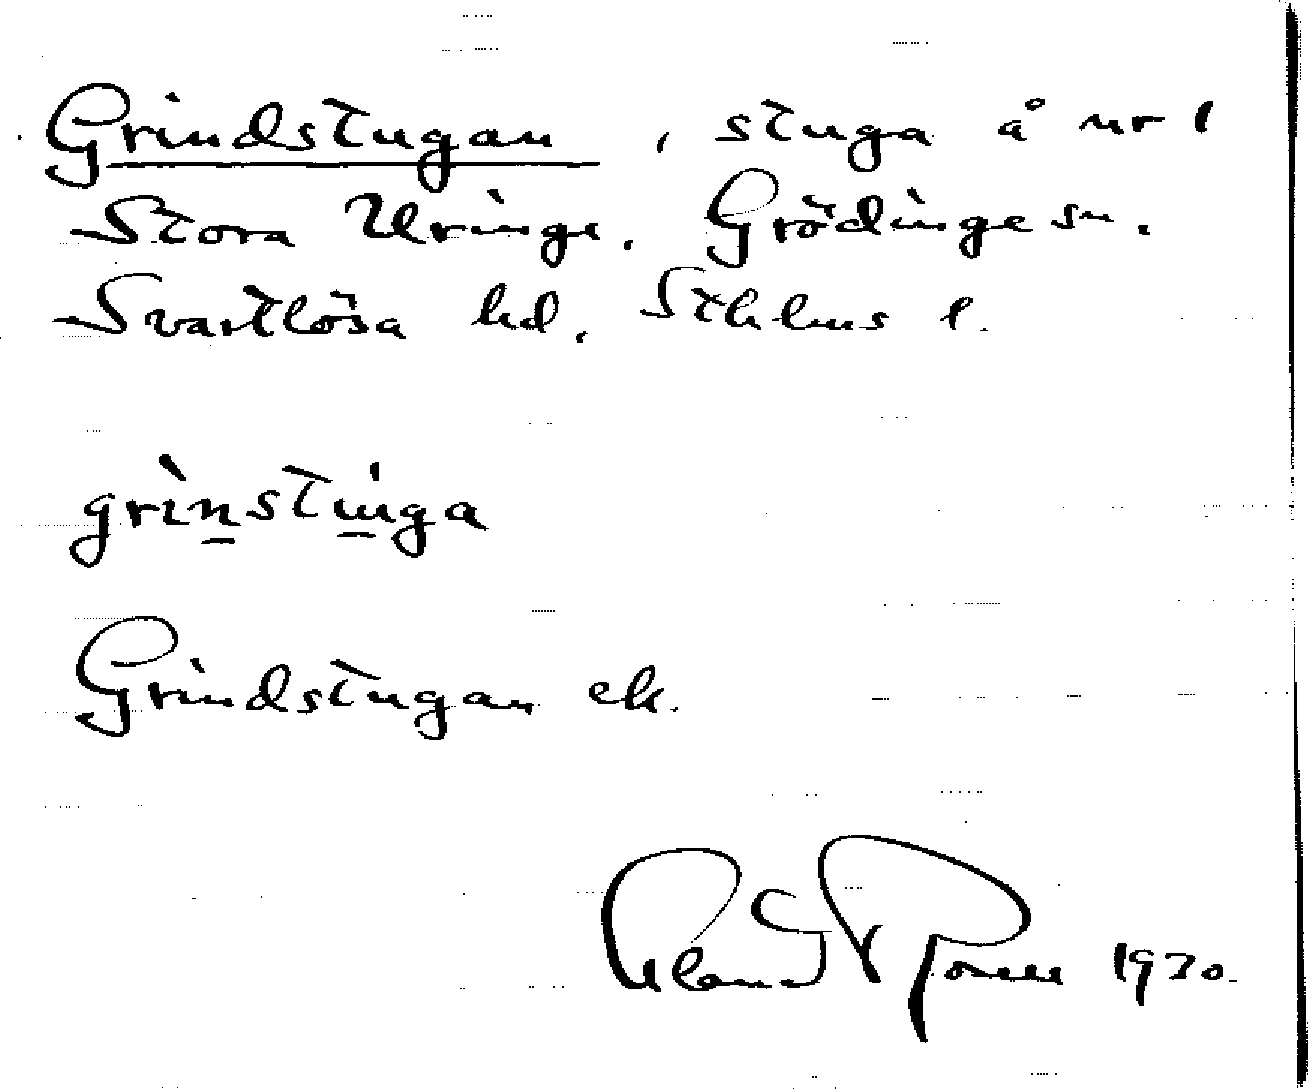 Grindstugan, stuga å nr 1
Stora Uringe. Grödinge sn.
Svartlösa hd. Sthlms l.
grìnstuga
Grindstugan ek.
1930.